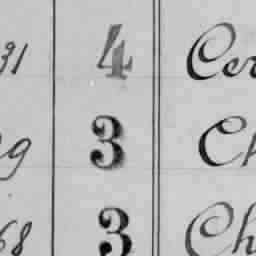 31 4 Cer
29 3 Ch
68 3 Ch